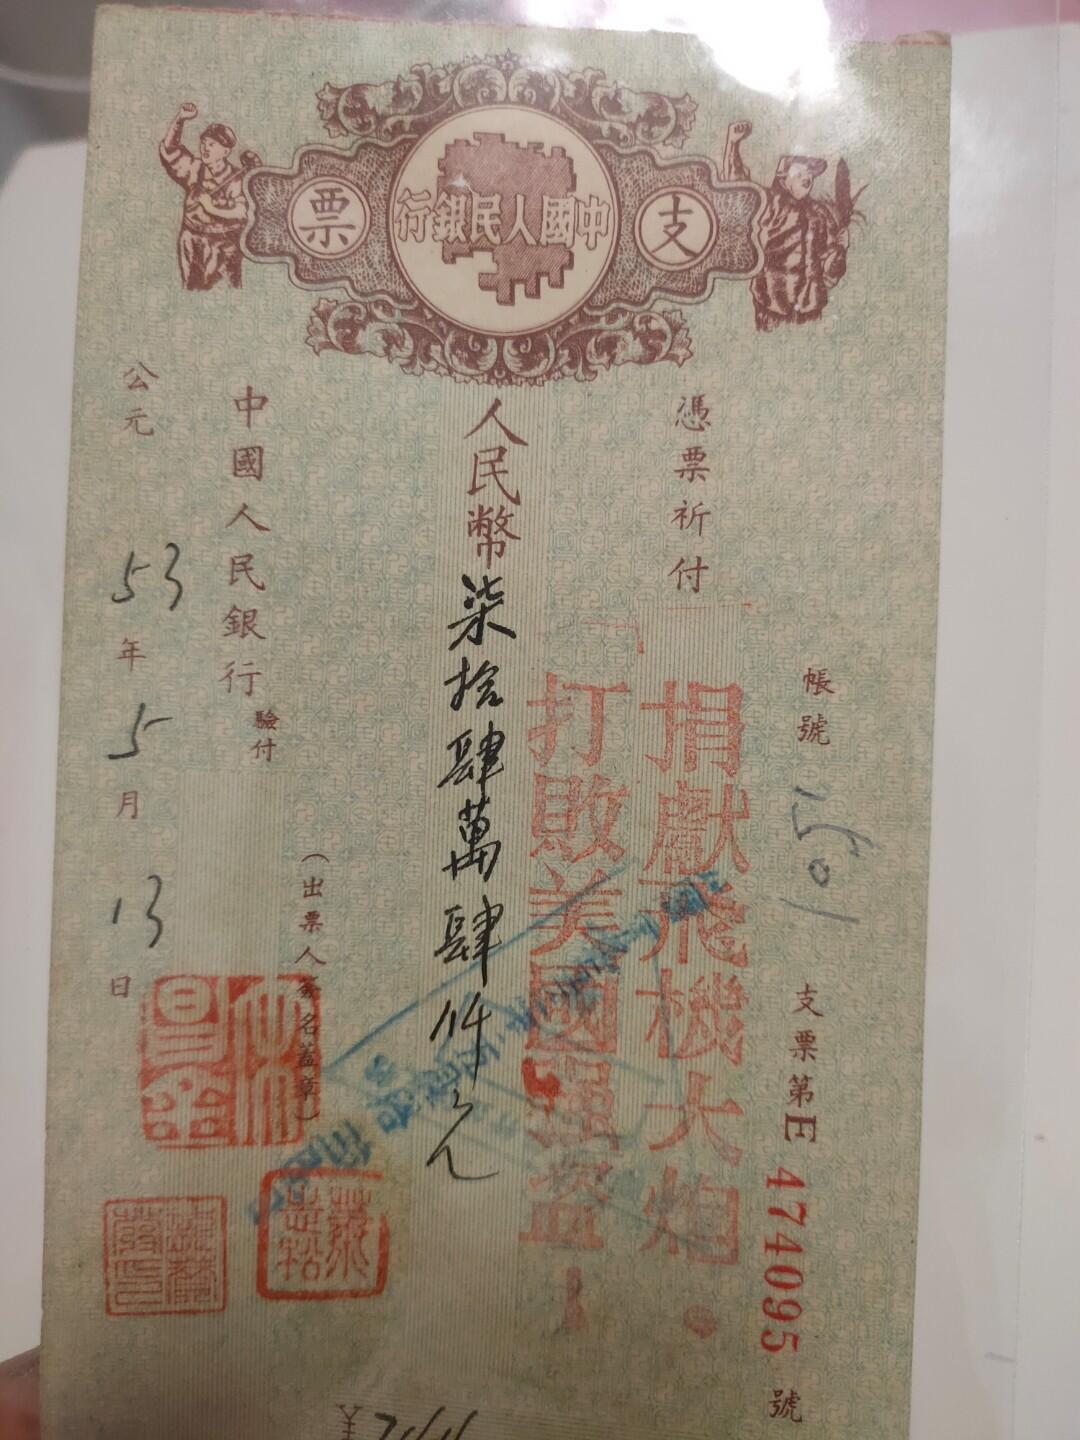 中國人民銀行
支票
憑票祈付
帳號 1051
支票第E 4740095 號
捐獻飛機大炮.
打敗美國强盜!
人民幣柒拾肆萬肆仟元
(出票人簽名蓋章)
中國人民銀行 驗付
公元 53 年 5 月 13 日